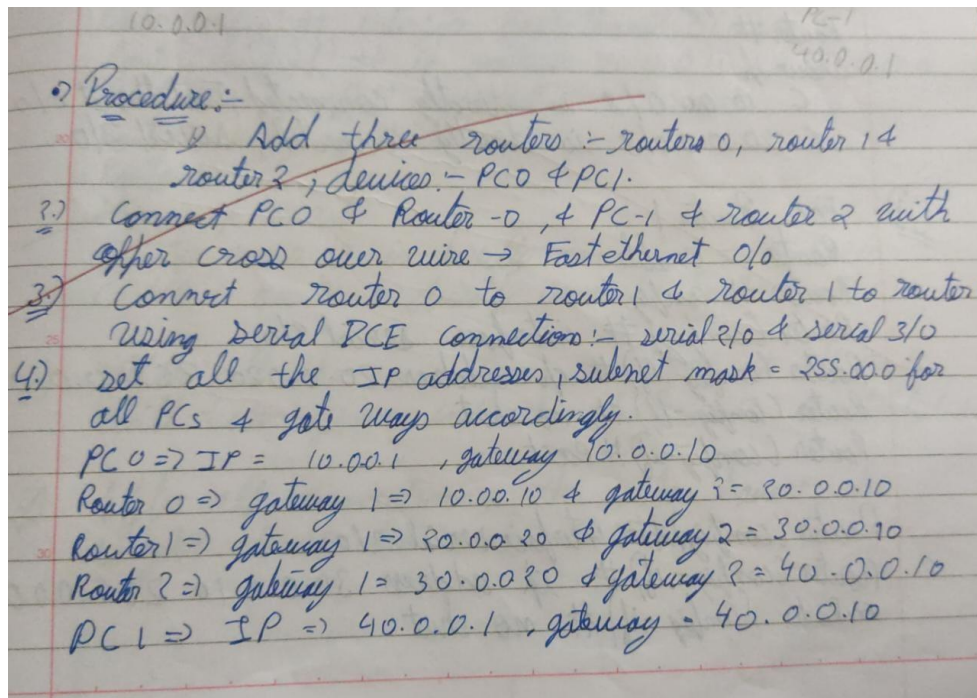 10.0.0.1
PC-1
40.0.0.1
Procedure:-
Add three routers :- routers 0, router 1 &
router 2 ; devices :- PC0 & PC1.
2.) Connect PC0 & Router -0 , & PC-1 & router 2 with
copper cross over wire → Fast ethernet 0/0
3.) Connect router 0 to router 1 & router 1 to router
using serial DCE connection :- serial 2/0 & serial 3/0
4.) set all the IP addresses, subnet mask = 255.0.0.0 for
all PCs & gate ways accordingly.
PC0 => IP = 10.0.0.1 , gateway 10.0.0.10
Router 0 => gateway 1 => 10.0.0.10 & gateway 2 = 20.0.0.10
Router 1 => gateway 1 => 20.0.0.20 & gateway 2 = 30.0.0.10
Router 2 => gateway 1 = 30.0.0.20 & gateway 2 = 40.0.0.10
PC1 => IP => 40.0.0.1 , gateway = 40.0.0.10